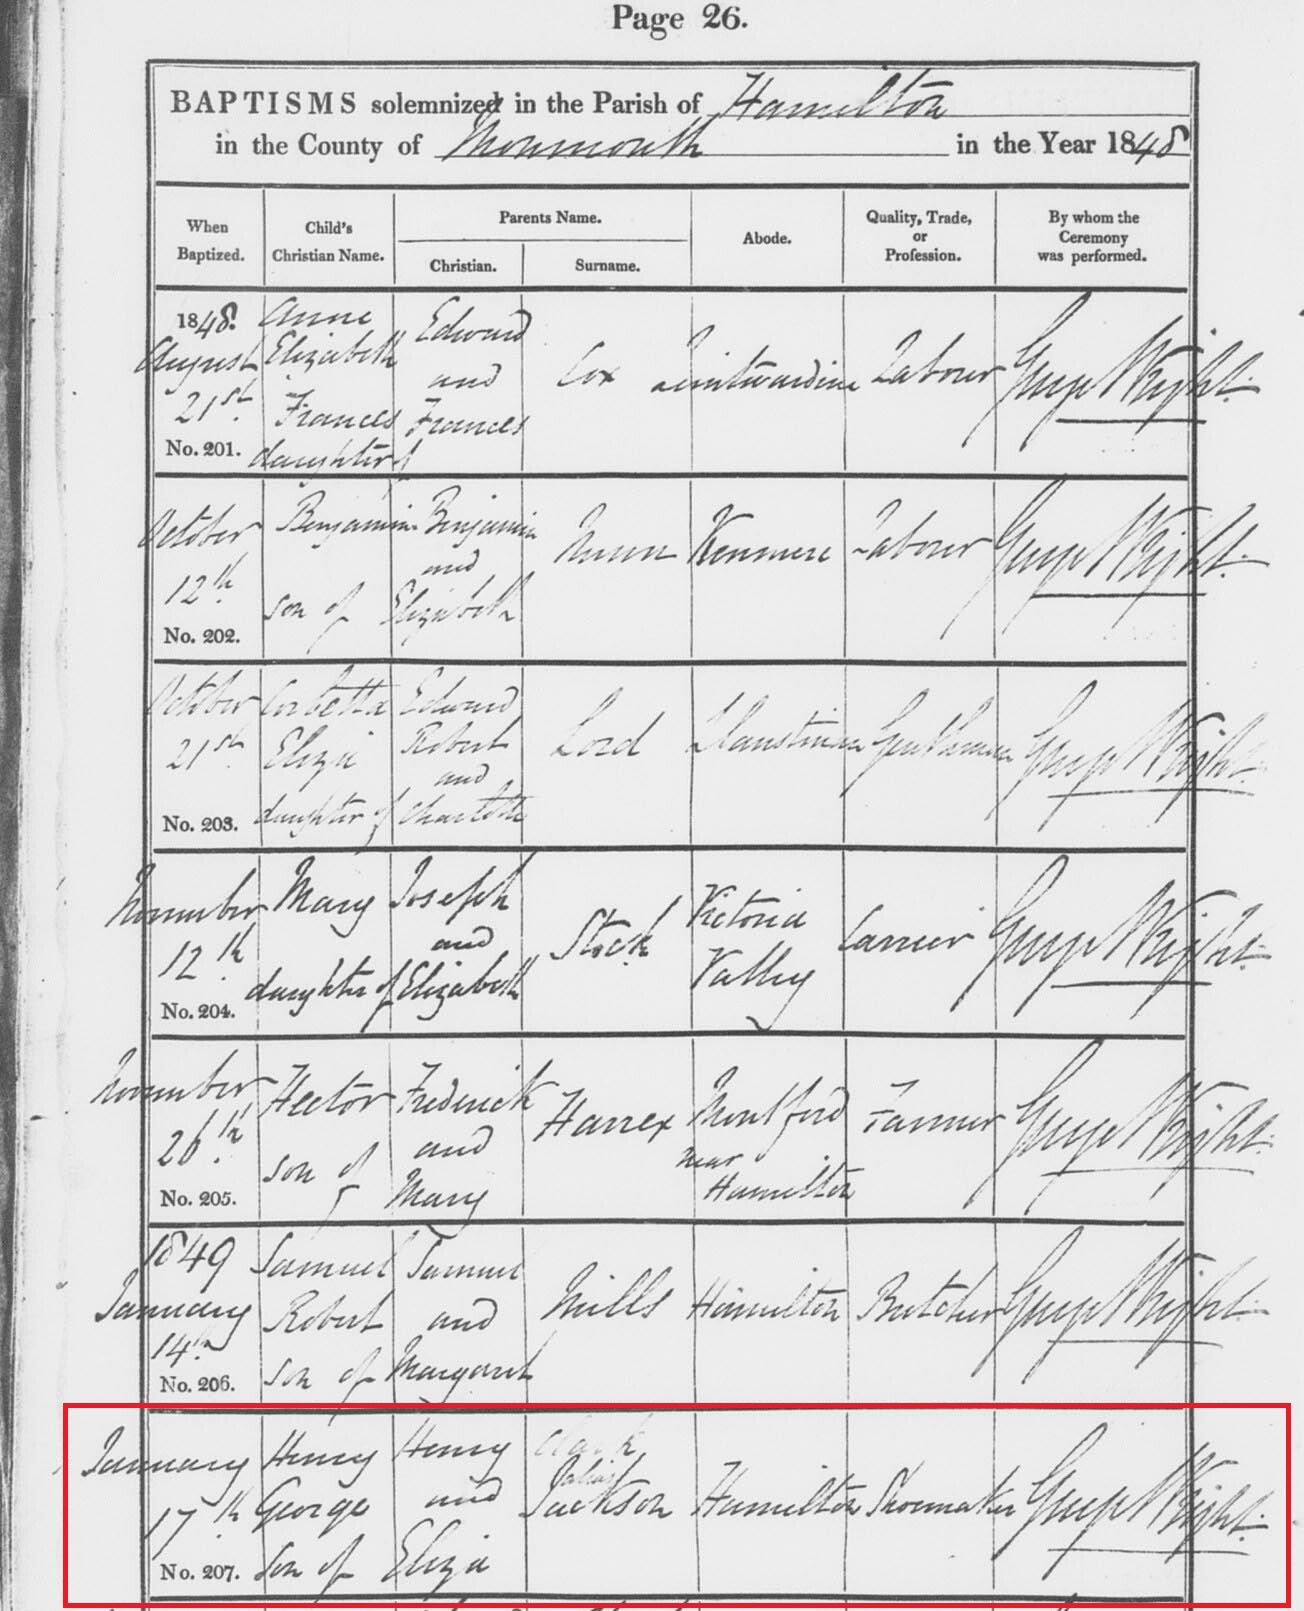 Page 26.
BAPTISMS solemnized in the Parish of Hamilton
in the County of Monmouth in the Year 1848
When Baptized.
Child's Christian Name.
Parents Name.
Christian.
Surname.
Abode.
Quality, Trade, or Profession.
By whom the Ceremony was performed.
1848. August 21st. No. 201.
Anne Elizabeth Frances daughter of
Edward and Frances
Cox
Leintwardine
Labourer
George Wright.
October 12th. No. 202.
Benjamin son of
Benjamin and Elizabeth
Nunn
Kenmere
Labourer
George Wright.
October 21st No. 203.
Corbetta Eliza daughter of
Edward Robert and Charlotte
Lord
Gentleman
George Wright.
November 12th. No. 204.
Mary daughter of
Joseph and Elizabeth
Stock
Victoria Valley
Carrier
George Wright.
November 26th. No. 205.
Hector son of
Frederick and Mary
Harrex
Montford near Hamilton
Farmer
George Wright.
1849 January 14th. No. 206.
Samuel Robert son of
Samuel and Margaret
Mills
Hamilton
Butcher
George Wright.
January 17th No. 207.
Henry George son of
Henry and Eliza
Clark (alias) Jackson
Hamilton
Shoemaker
George Wright.